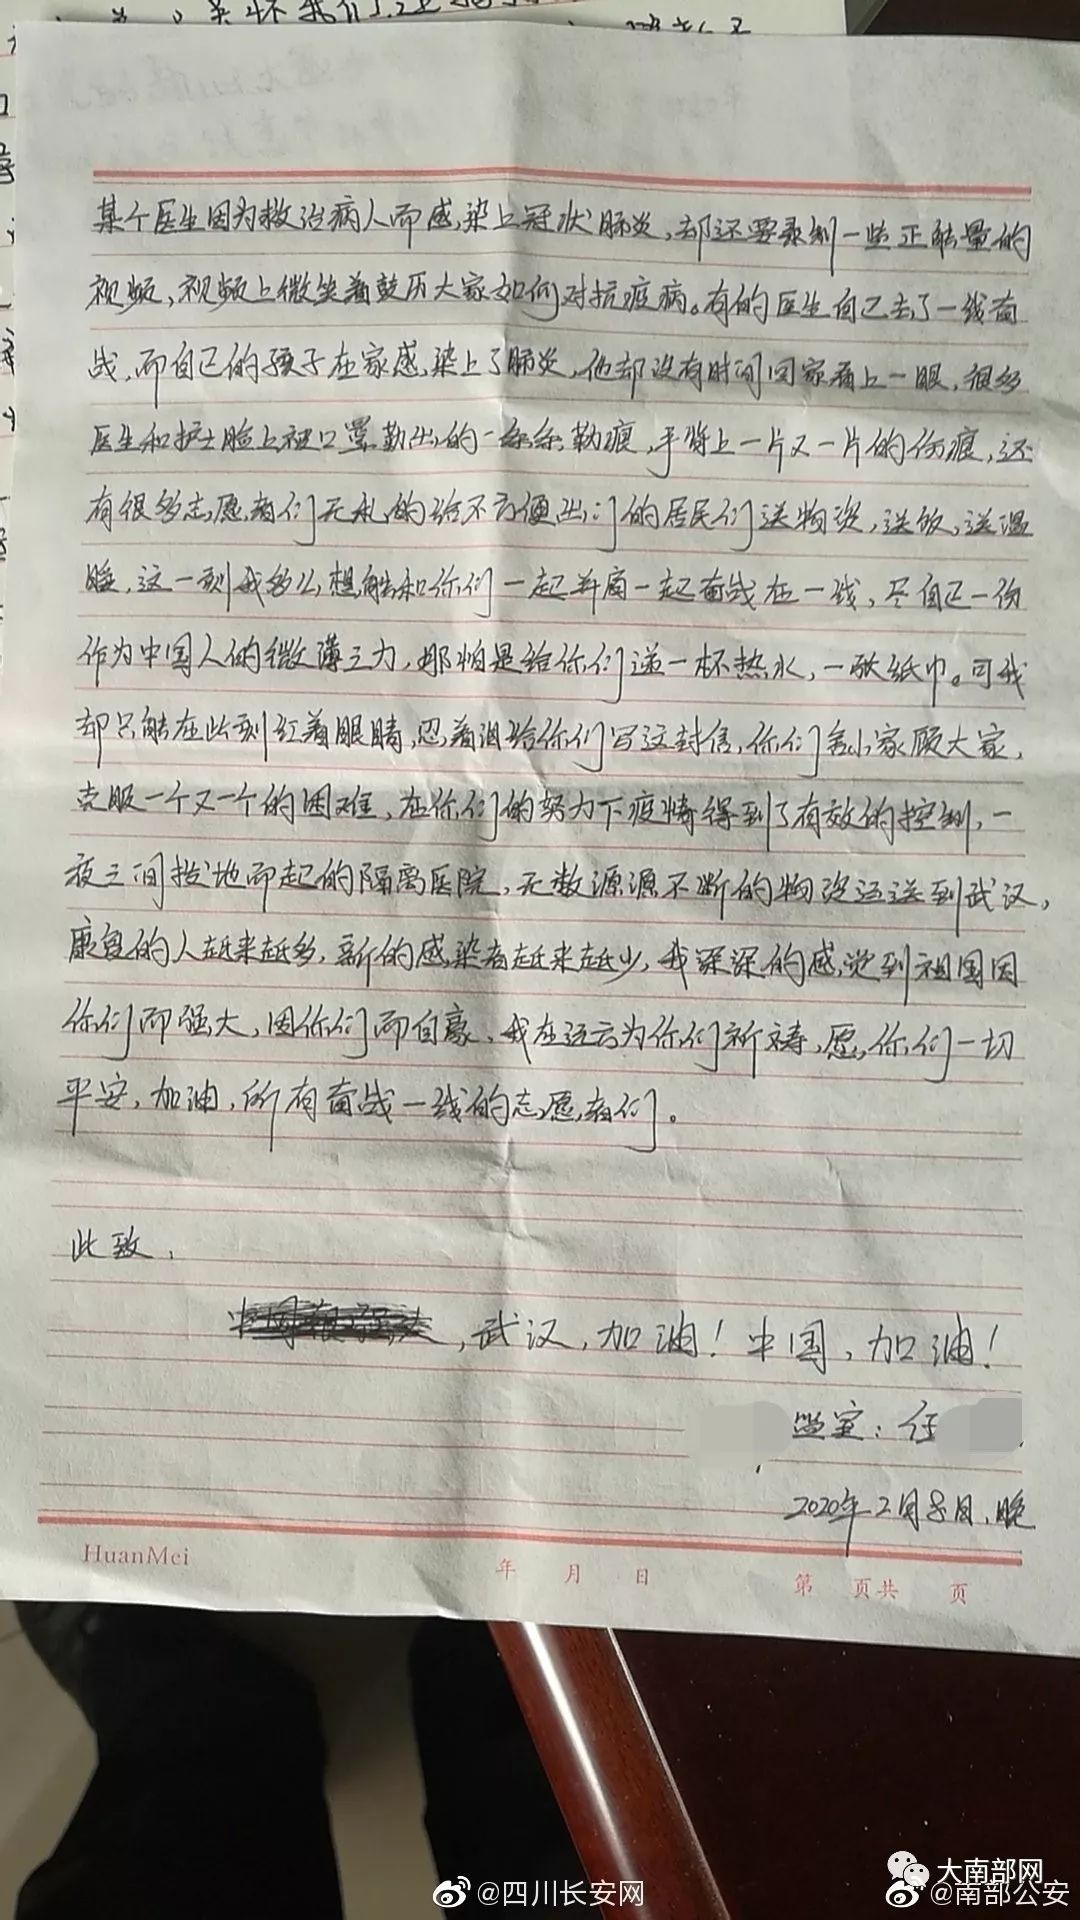 某个医生因为救治病人而感染上冠状肺炎，却还要录制一些正能量的
视频，视频上微笑着鼓历大家如何对抗疫病。有的医生自己去了一线奋
战，而自己的孩子在家感染上了肺炎，他却没有时间回家看上一眼，很多
医生和护士脸上被口罩勒出的一条条勒痕，手背上一片又一片的伤痕，还
有很多志愿者们无私的给不方便出门的居民们送物资，送饭，送温
暖，这一刻我多么想能和你们一起并肩一起奋战在一线，尽自己一份
作为中国人的微薄之力，哪怕是给你们递一杯热水，一张纸巾。可我
却只能在此刻红着眼睛，忍着泪给你们写这封信，你们舍小家顾大家，
克服一个又一个的困难，在你们的努力下疫情得到了有效的控制，一
夜之间拔地而起的隔离医院，无数源源不断的物资运送到武汉，
康复的人越来越多，新的感染者越来越少，我深深的感觉到祖国因
你们而强大，因你们而自豪，我在远方为你们祈祷，愿你们一切
平安，加油，所有奋战一线的志愿者们。
此致，
，武汉，加油！中国，加油！
监室：任
2020年2月8日，晚
HuanMei 年 月 日 第 页共 页
大南部网
@四川长安网 @南部公安